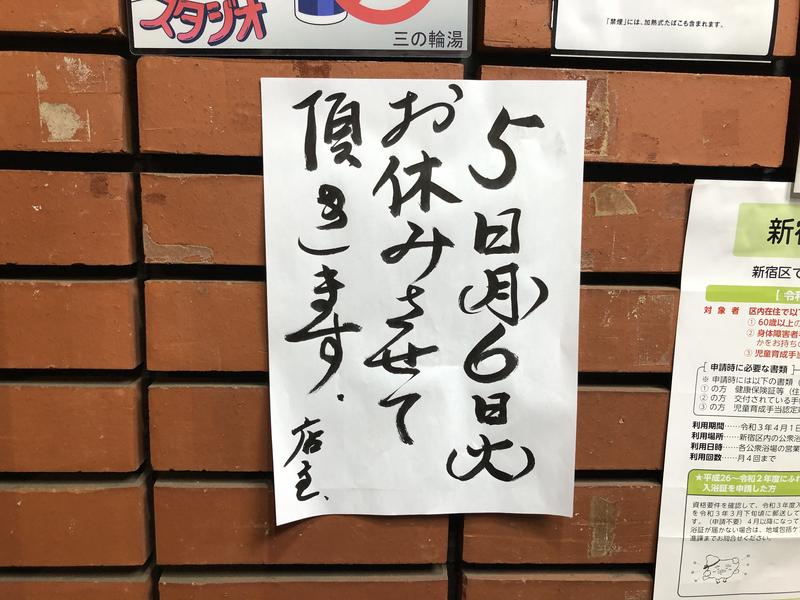 スタジオ
三の輪湯
「禁煙」には、加熱式たばこも含まれます。
5日(月)6日(火)
お休みさせて
頂きます.
店主.
新
新宿区で
対象者 区内在住で以
① 60歳以上の
② 身体障害者
かをお持ちの
③ 児童育成手当
申請時に必要な書類
※ 申請時には以下の書類
①の方 健康保険証等(住
②の方 交付されている手
③の方 児童育成手当認定
利用期間……令和3年4月1日
利用場所……新宿区内の公衆浴
利用日時……各公衆浴場の営業
利用回数……月4回まで
★平成26~令和2年度にふれ
入浴証を申請した方
資格要件を確認して、令和3年度入
を令和3年3月下旬頃に郵送して
す。(申請不要)4月以降になって
浴証が届かない場合は、地域包括ケ
進課までお問合せください。